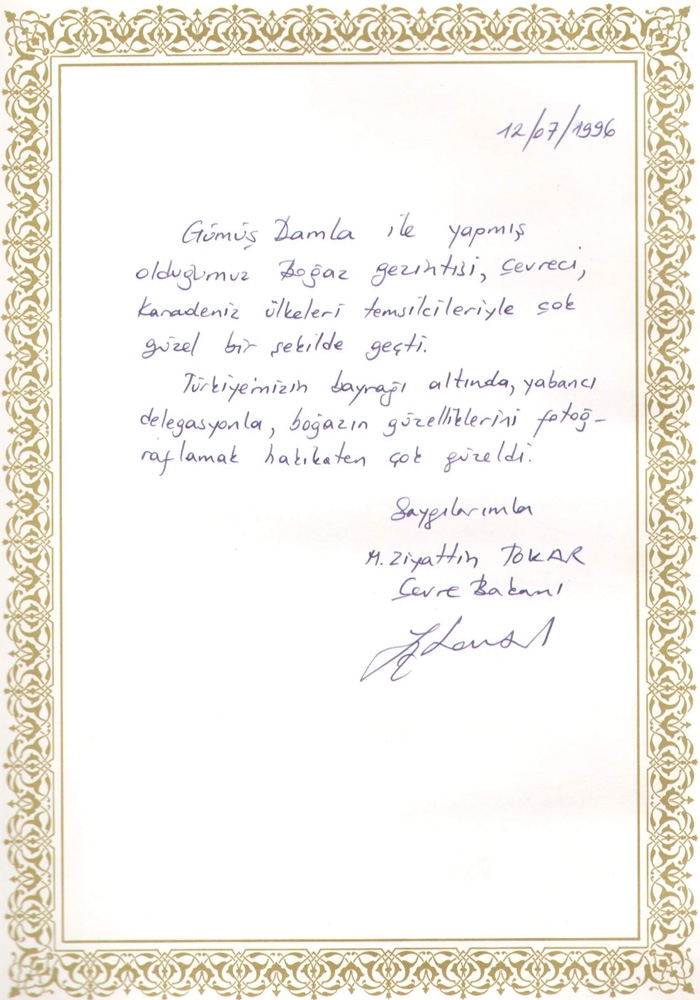 12/07/1996
Gümüş Damla ile yapmış
olduğumuz Boğaz gezintisi, çevreci,
Karadeniz ülkeleri temsilcileriyle çok
güzel bir şekilde geçti.
Türkiyemizin bayrağı altında, yabancı
delegasyonla, boğazın güzelliklerini fotoğ-
raflamak hakikaten çok güzeldi.
Saygılarımla
M. Ziyattin TOKAR
Çevre Bakanı